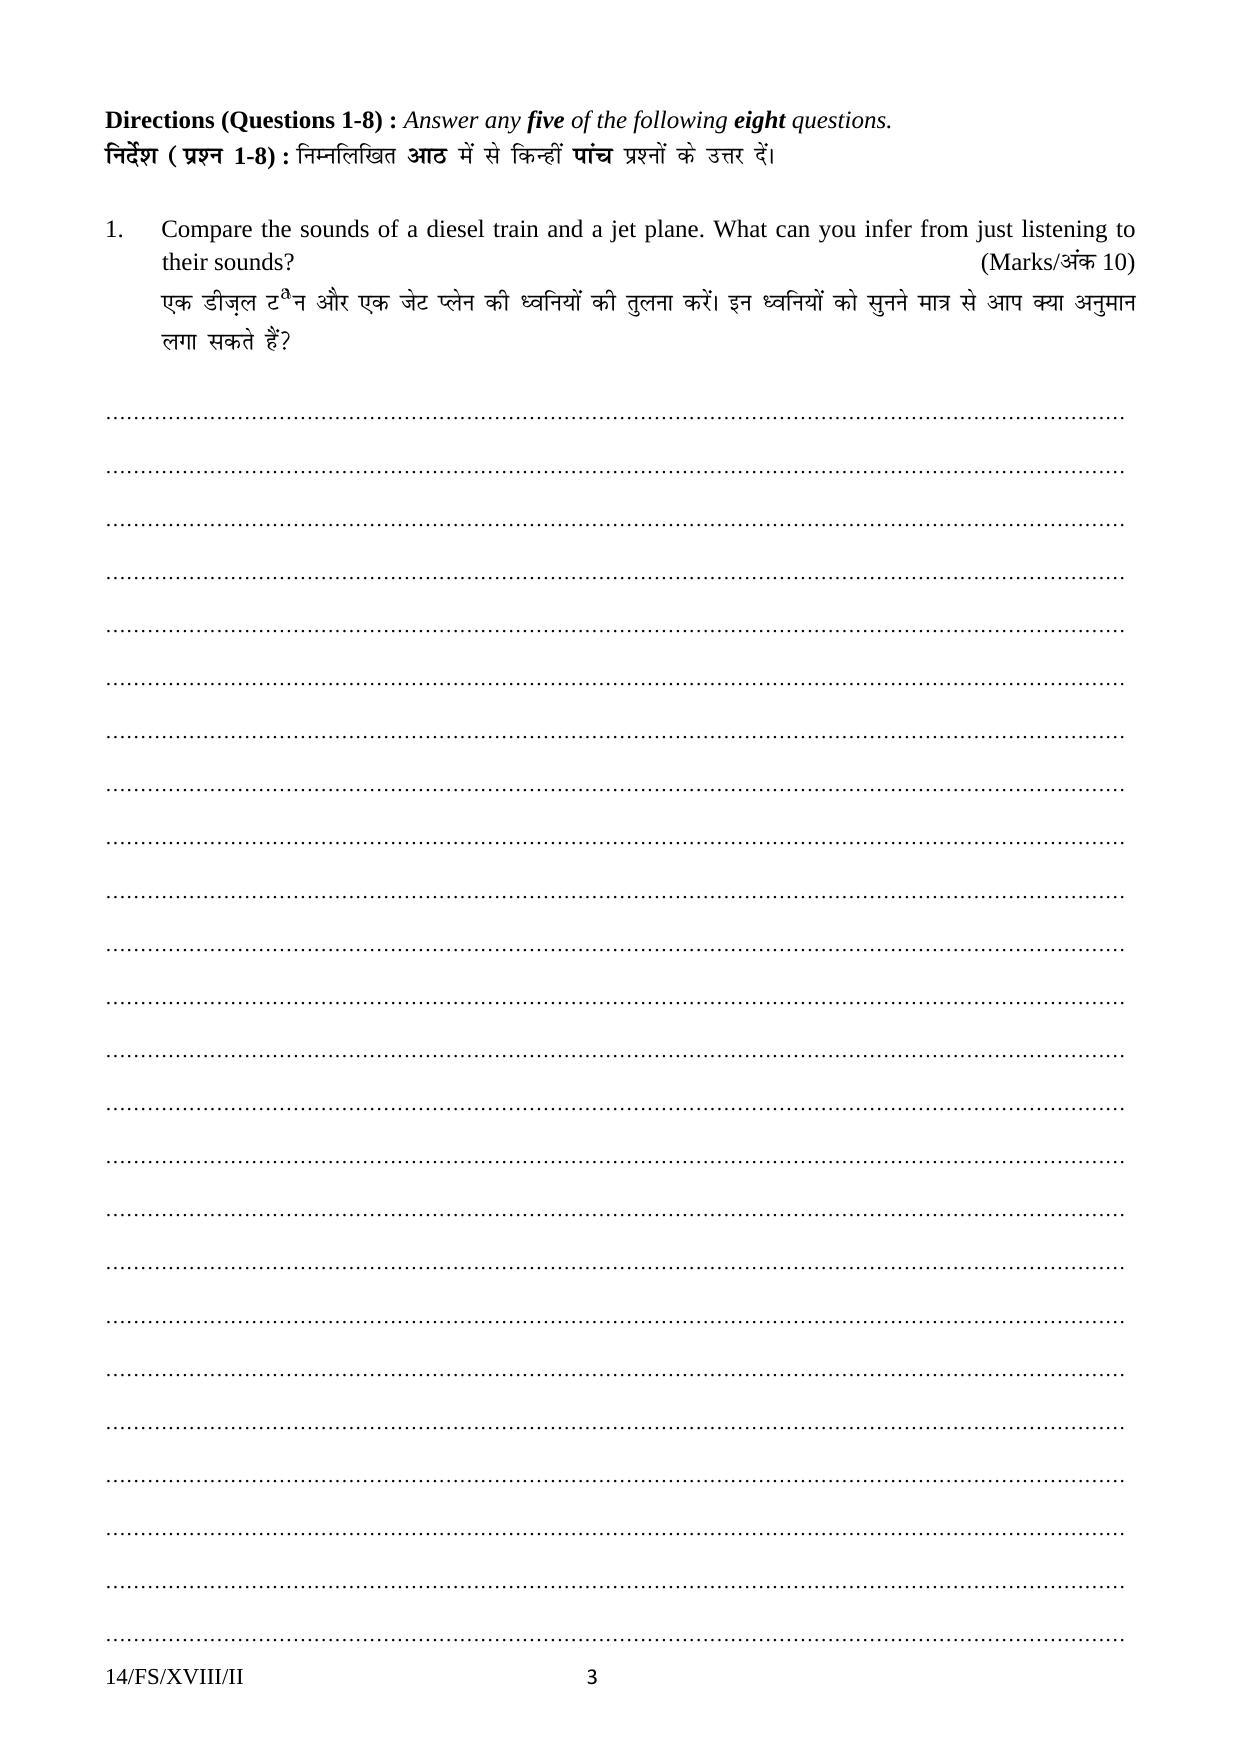 Directions (Questions 1-8) : Answer any five of the following eight questions.
निर्देश ( प्रश्न 1-8) : निम्नलिखित आठ में से किन्हीं पांच प्रश्नों के उत्तर दें।
1. Compare the sounds of a diesel train and a jet plane. What can you infer from just listening to
their sounds? (Marks/अंक 10)
एक डीज़ल और एक जेट प्लेन की ध्वनियों की तुलना करें। इन ध्वनियों को सुनने मात्र से आप क्या अनुमान
लगा सकते हैं?
14/FS/XVIII/II 3